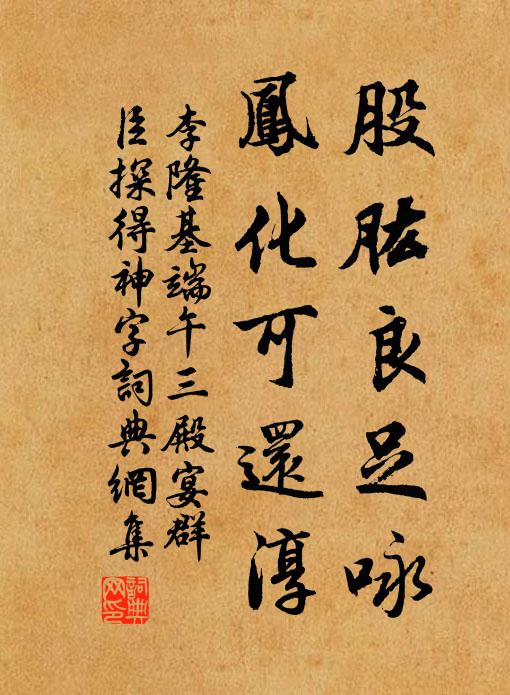 股肱良足咏
鳳化可還淳
李隆基端午三殿宴群
臣探得神字詞典網集
詞典網印